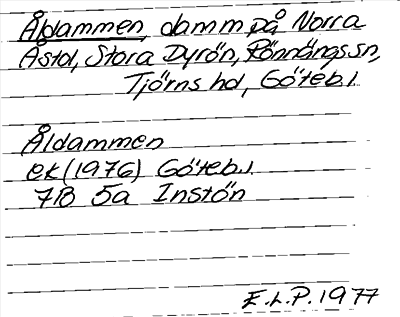 Åldammen, damm på Norra
Åstol, Stora Dyrön, Rönnängs sn,
Tjörns hd, Göteb. l.
Åldammen
ek (1976) Göteb. l.
7B 5a Instön
E. L. P. 1977